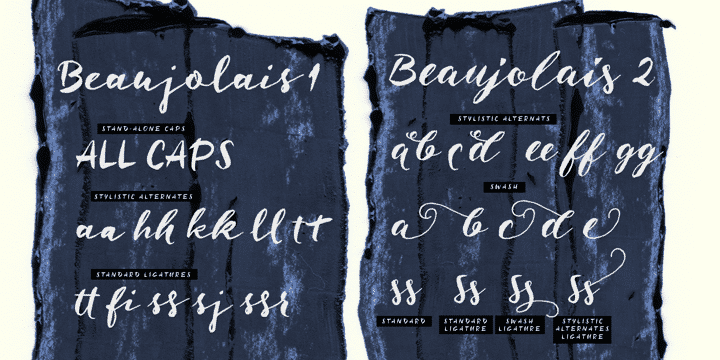 Beaujolais 1
STAND-ALONE CAPS
ALL CAPS
STYLISTIC ALTERNATES
aa hh kk ll tt
STANDARD LIGATURES
tt fi ss sj ssr
Beaujolais 2
STYLISTIC ALTERNATS
a b c d ee ff gg
SWASH
a b c d e
ss ss ss ss
STANDARD
STANDARD LIGATURE
SWASH LIGATURE
STYLISTIC ALTERNATES LIGATURE